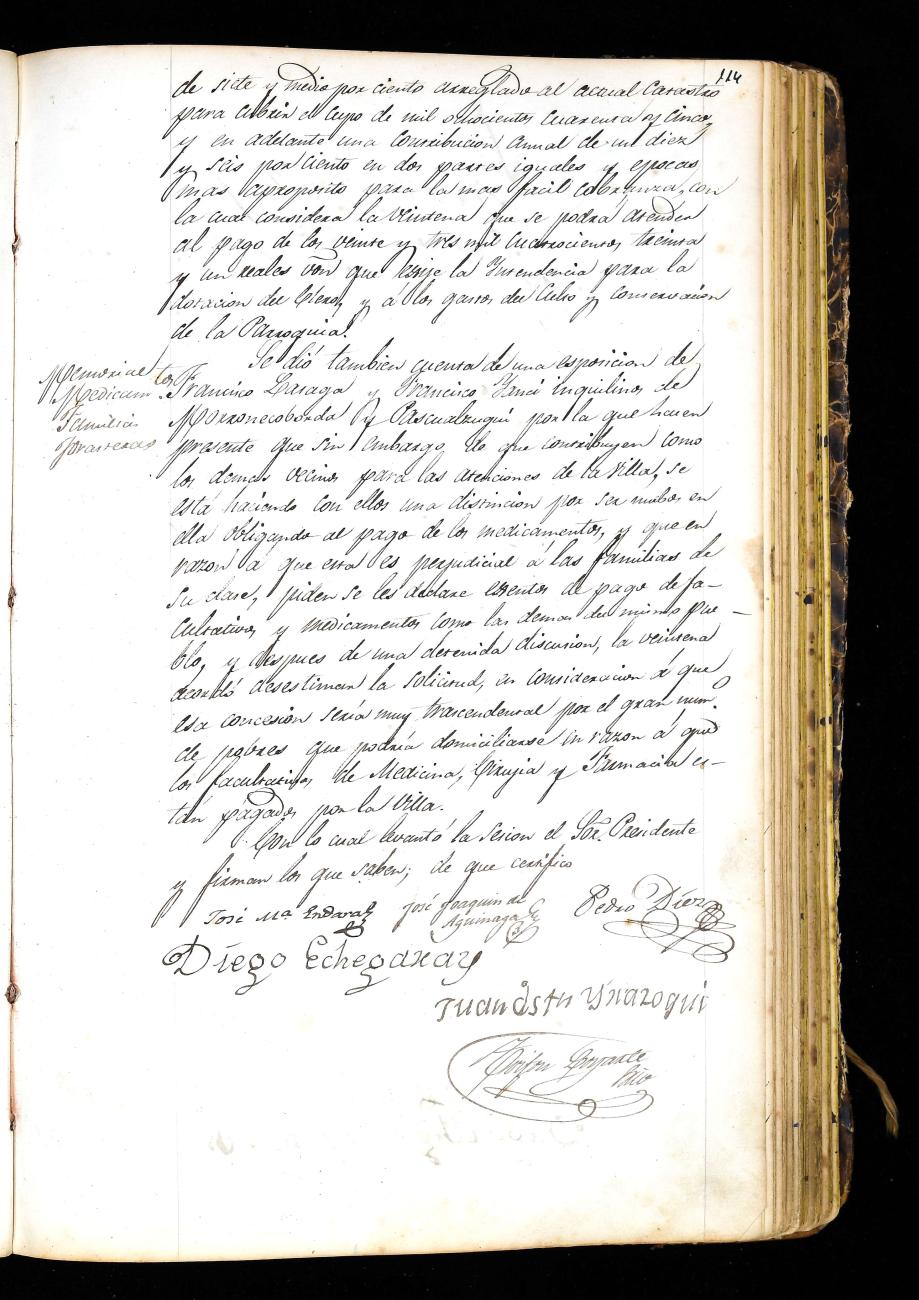 114
de siete y medio por ciento arreglado al actual Catastro
para cubrir el cupo de mil ochocientos cuarenta y cinco,
y en adelante una contribucion anual de un diez
y seis por ciento en dos partes iguales y epocas
mas aproposito para la mas facil cobranza, con
la cual considera la Veintena que se podrá atender
al pago de los veinte y tres mil cuatrocientos treinta
y un reales von que exije la Yntendencia para la
dotacion del Clero, y á los gastos del Culto y conservacion
de la Parroquia.
Se dió tambien cuenta de una esposicion de
Memorial
Medicamtos
Familias
Forasteras
Francisco Laraga y Francisco inquilinos de
y por la que hacen
presente que sin embargo de que contribuyen como
los demas vecinos para las atenciones de la Villa, se
está haciendo con ellos una distincion por ser nuebos en
ella obligando al pago de los medicamentos, y que en
razon á que esta es perjudicial á las familias de
su clase, piden se les declare esentos de pago de fa-
cultativos y medicamentos como las demas del mismo pue-
blo, y despues de una detenida discusion, la veintena
acordó desestimar la solicitud, en consideracion á que
esa concesion sería muy trascendental por el gran numo
de pobres que podría domiciliarse en razon á que
los facultativos de Medicina, Cirujia y Farmacia es-
tán pagados por la Villa.
Con lo cual levantó la sesion el Sor. Presidente
y firman los que saben; de que certifico
José Ma Endara
José Joaquin de
Aguinaga
Pedro Díez
Diego Echegaray
Juan Ystu Yrazoqui